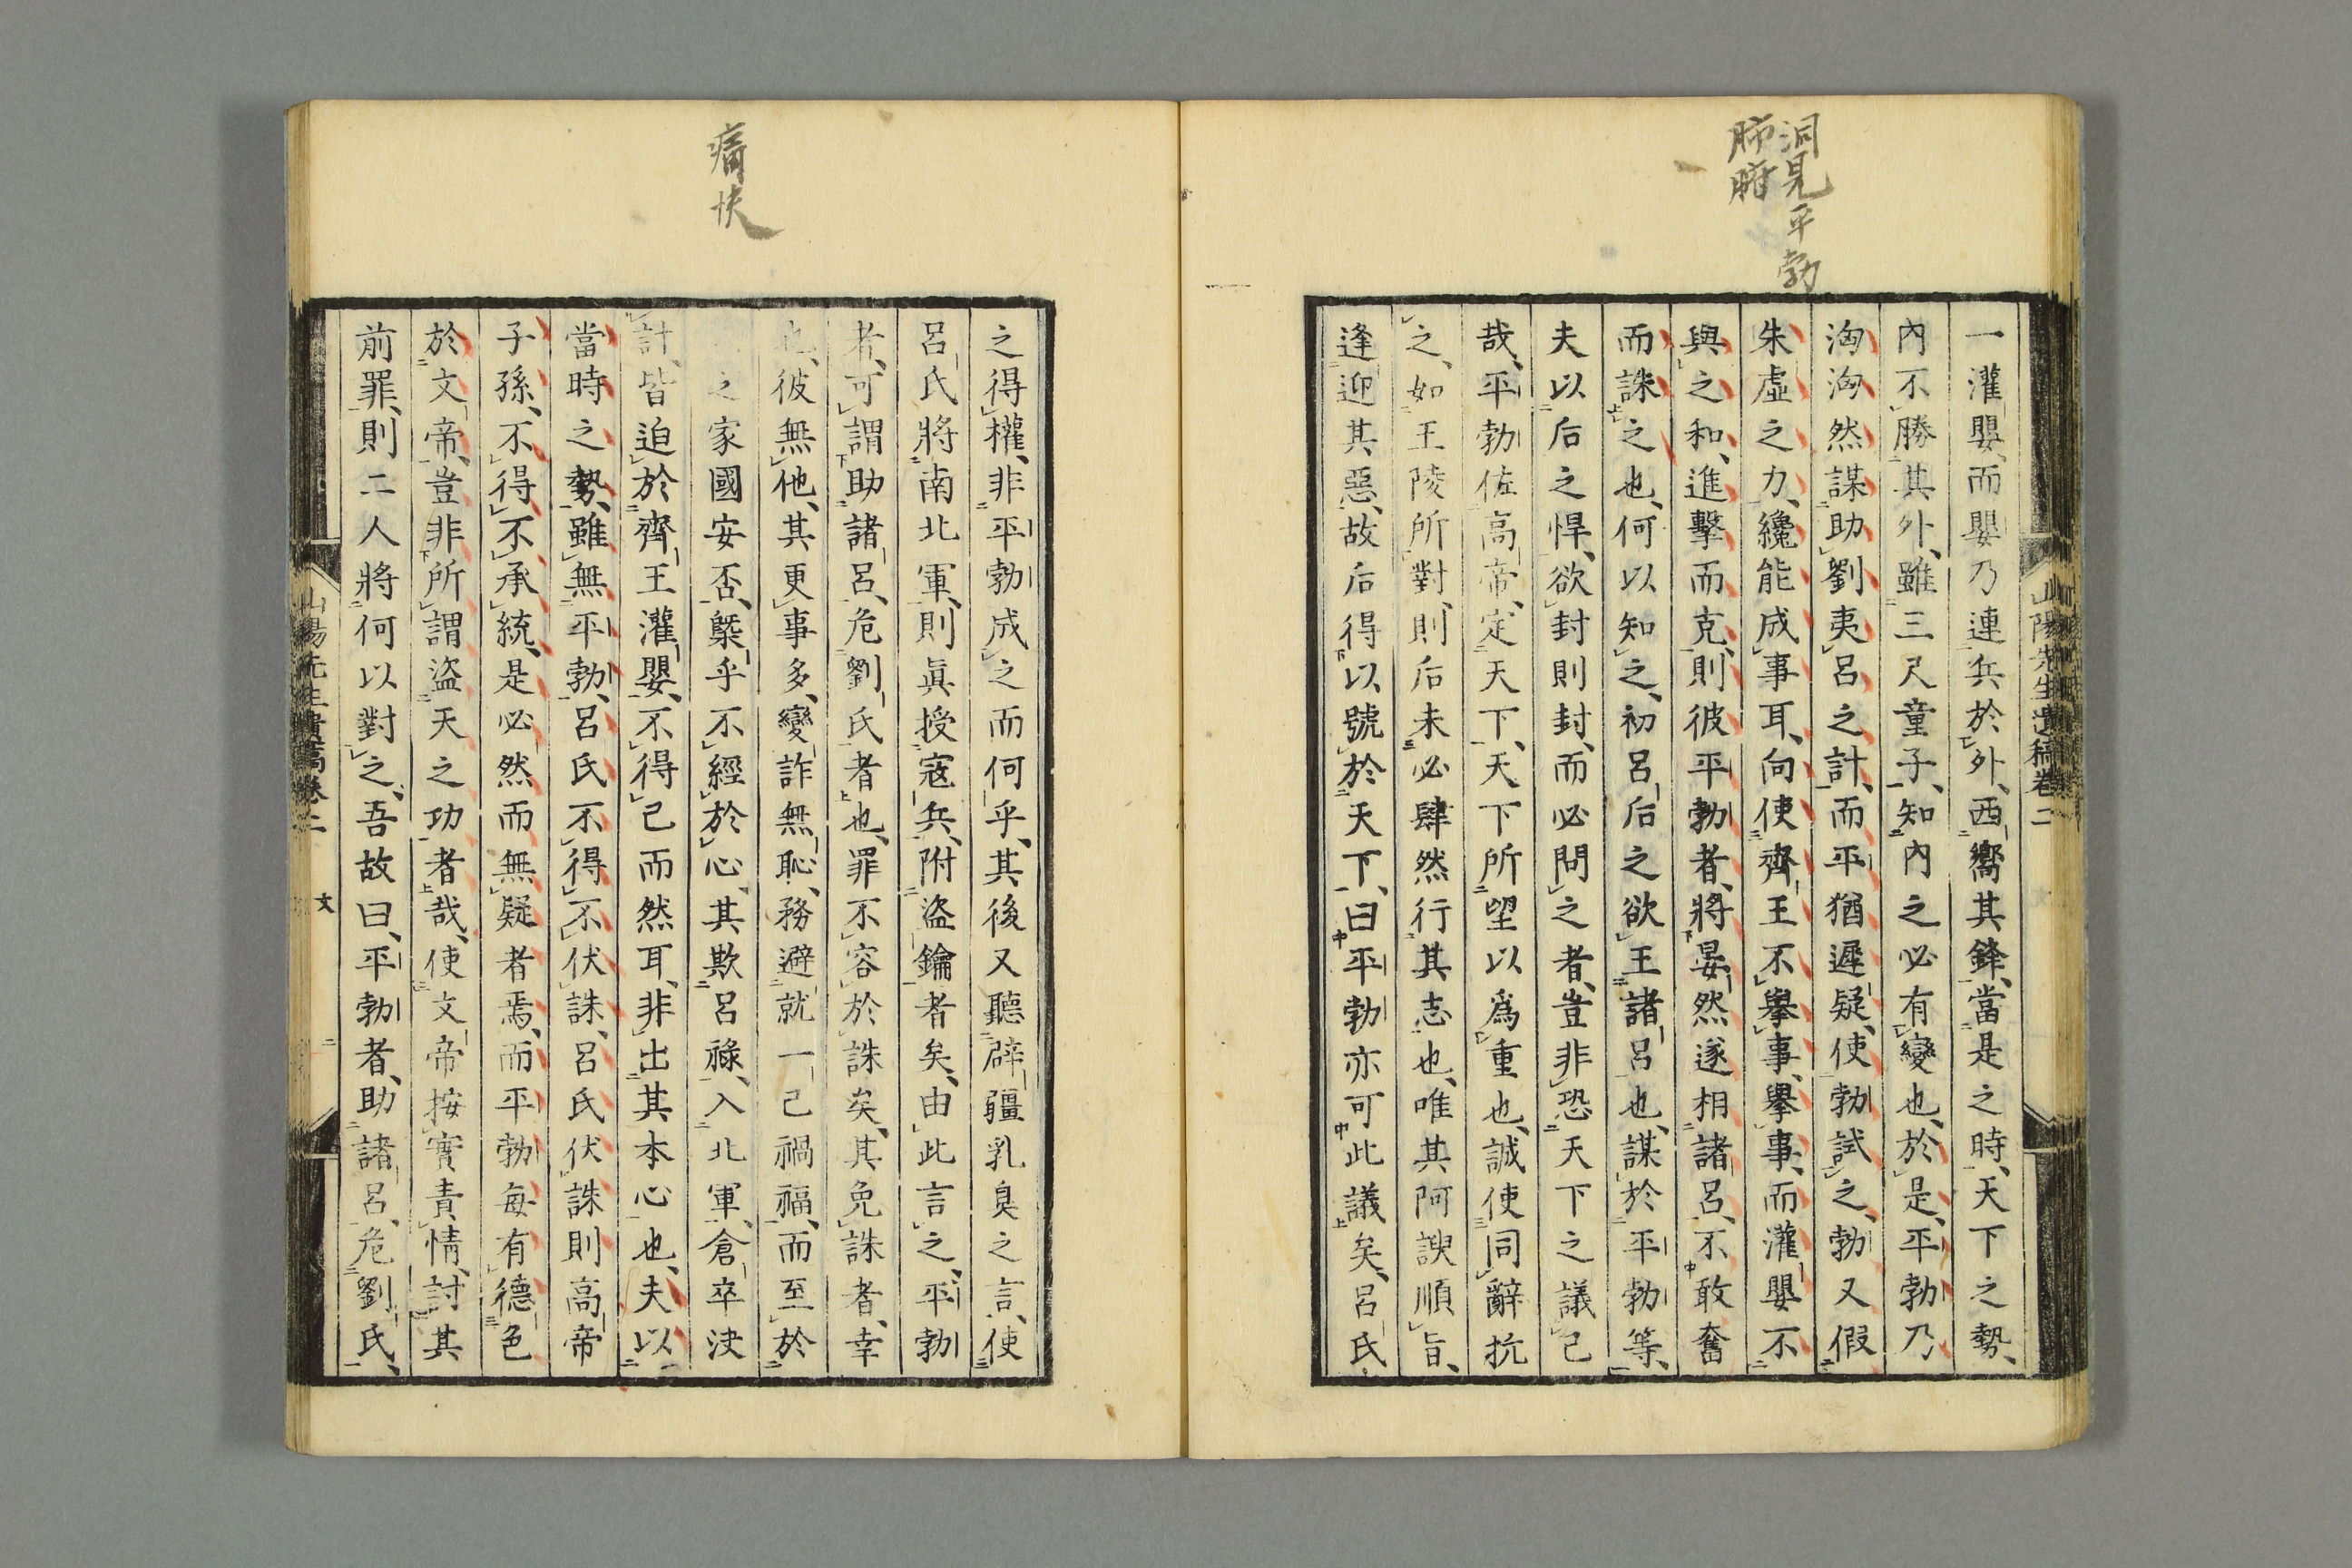 洞見平勃
肺腑
山陽先生遺稿卷二
一灌嬰、而嬰乃連兵於外、西嚮其鋒、當是之時、天下之勢、
內不勝其外、雖三尺童子、知內之必有變也、於是、平勃乃
洶洶然謀助劉夷呂之計、而平猶遲疑、使勃試之、勃又假
朱虛之力、纔能成事耳、向使齊王不擧事、擧事、而灌嬰不
與之和、進擊而克、則彼平勃者、將晏然遂相諸呂、不敢奮
而誅之也、何以知之、初呂后之欲王諸呂也、謀於平勃等、
夫以后之悍、欲封則封、而必問之者、豈非恐天下之議己
哉、平勃佐高帝、定天下、天下所望以爲重也、誠使同辭抗
之、如王陵所對、則后未必肆然行其志也、唯其阿諛順旨、
逢迎其惡、故后得以號於天下、曰平勃亦可此議矣、呂氏
痛快
之得權、非平勃成之而何乎、其後又聽辟疆乳臭之言、使
呂氏將南北軍、則眞授寇兵、附盜鑰者矣、由此言之、平勃
者、可謂助諸呂、危劉氏者也、罪不容於誅矣、其免誅者、幸
也、彼無他、其更事多、變詐無恥、務避就一己禍福、而至於
之家國安否、槩乎不經於心、其欺呂祿、入北軍、倉卒決
計、皆迫於齊王灌嬰、不得已而然耳、非出其本心也、夫以
當時之勢、雖無平勃、呂氏不得不伏誅、呂氏伏誅則高帝
子孫、不得不承統、是必然而無疑者焉、而平勃每有德色
於文帝、豈非所謂盜天之功者哉、使文帝按實責情、討其
前罪、則二人將何以對之、吾故曰、平勃者、助諸呂、危劉氏、
山陽先生遺稿卷二
文
二